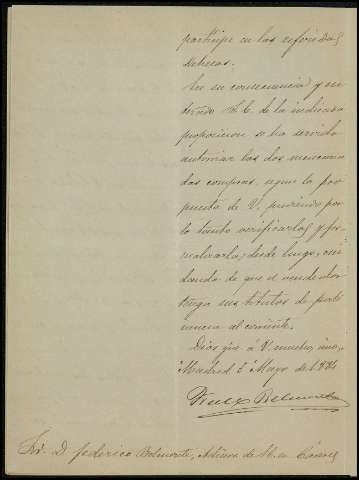 participe en las referidas
salinas.
En su consecuencia y en
terado S. E. de la indicada
proposicion se ha servido
autorizar las dos menciona
das compras, segun la pro
puesta de V, pudiendo por
lo tanto verificarlas y for
malizarlas, desde luego, cui
dando de que el vendedor
tenga sus titulos de perte
nencia al corriente.
Dios güe. á V. muchos años.
Madrid 2 Mayo de 1884
Belmonte
Sr. D. Federico Belmonte,